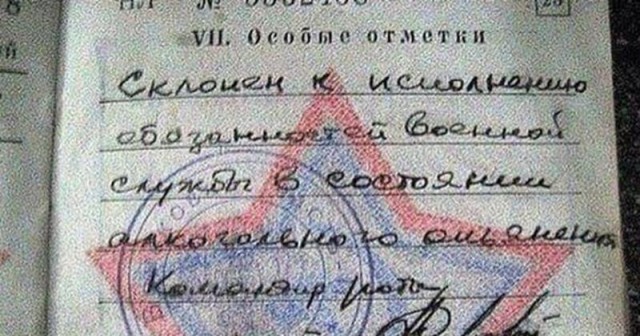 VII. Особые отметки
Склонен к исполнению
обязанностей военной
службы в состоянии
алкогольного опьянения
Командир роты